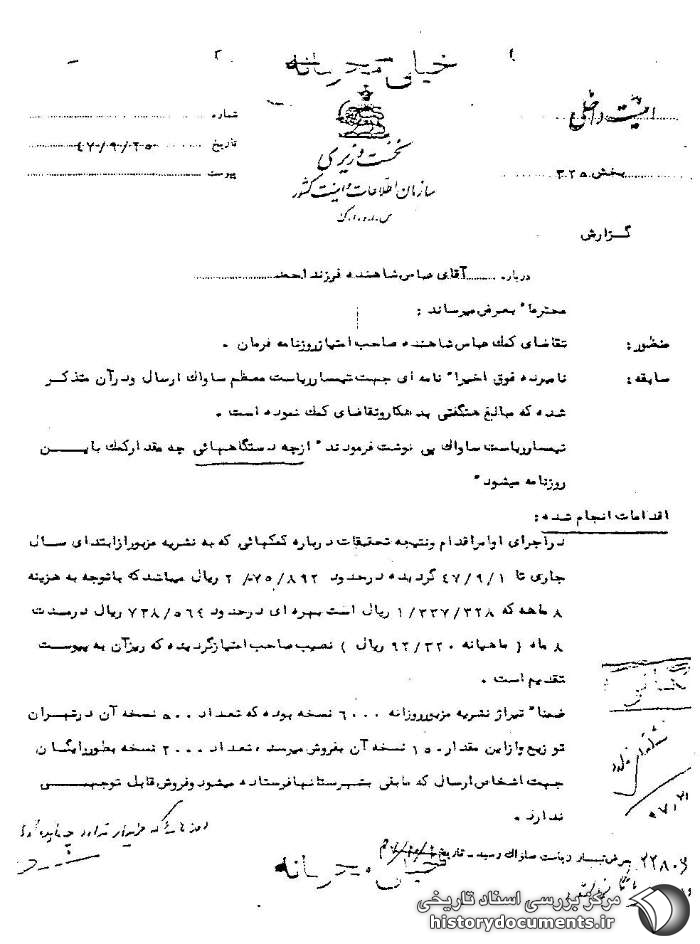 خیلی محرمانه
امنیت داخلی
شماره
نخست وزیری
تاریخ ۴۷/۹/۲۵
سازمان اطلاعات و امنیت کشور
بخش ۳۲۵
پیوست
س.ا.و.ا.ک
گزارش
درباره آقای عباس شاهنده فرزند احمد
محترما" بعرض میرساند :
منظور : تقاضای کمک عباس شاهنده صاحب امتیاز روزنامه فرمان .
سابقه : نامبرده فوق اخیرا" نامه ای جهت تیمسار ریاست معظم ساواک ارسال ودرآن متذکر
شده که مبالغ هنگفتی بدهکاروتقاضای کمک نموده است .
تیمسارریاست ساواک پی نوشت فرمودند " ازچه دستگاههائی چه مقدارکمک باین
روزنامه میشود"
اقدامات انجام شده :
دراجرای اوامراقدام ونتیجه تحقیقات درباره کمکهائی که به نشریه مزبورازابتدای سال
جاری تا ۴۷/۹/۱ گردیده درحدود ۲/۰۷۵/۸۹۲ ریال میباشدکه باتوجه به هزینه
۸ ماهه که ۱/۳۳۷/۳۲۸ ریال است بهره ای درحدود ۷۳۸/۵۶۴ ریال درمدت
۸ ماه ( ماهیانه ۹۲/۳۲۰ ریال ) نصیب صاحب امتیازگردیده که ریزآن به پیوست
تقدیم است .
ضمنا" تیراژ نشریه مزبورروزانه ۶۰۰۰ نسخه بوده که تعداد ۵۰۰ نسخه آن درتهران
توزیع وازاین مقدار ۱۵۰ نسخه آن بفروش میرسد ، تعداد ۲۰۰۰ نسخه بطوررایگان
جهت اشخاص ارسال که مابقی بشهرستانهافرستاده میشود وفروش قابل توجهی
ندارد .
روزنامه‌ای که خریدار ندارد چه فایده دارد
بعرض تیمسار ریاست ساواک رسید - تاریخ
خیلی محرمانه
۲۲۸۰۶
مرکز بررسی اسناد تاریخی
historydocuments.ir